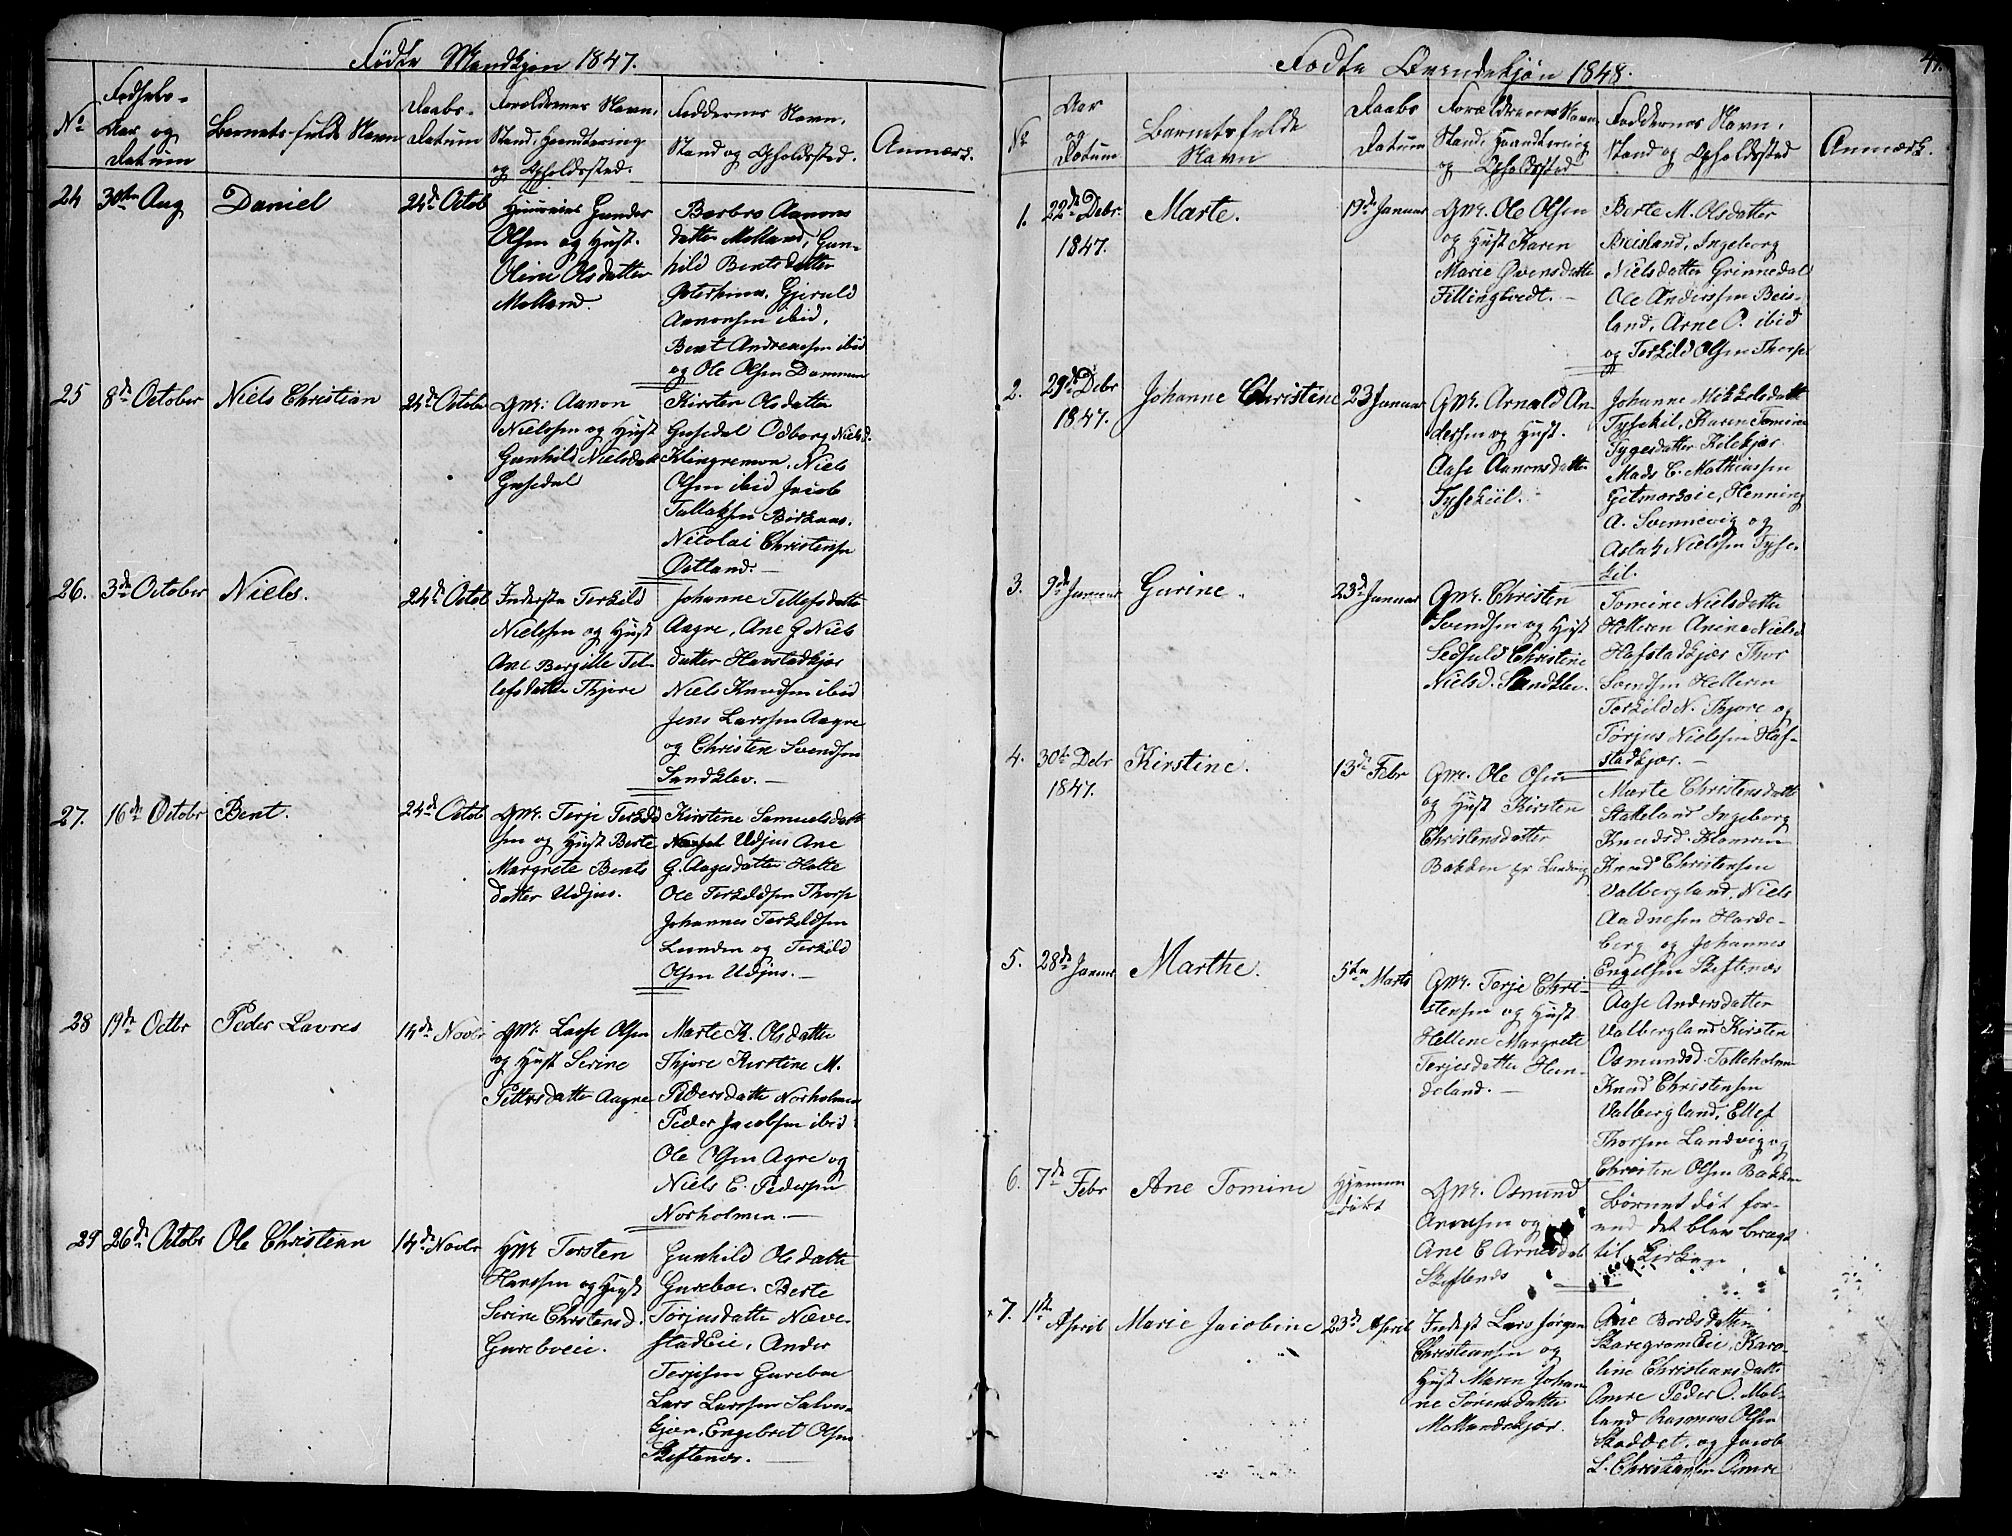 Fødte Mandkjøn 1847.
No
Fødsels-
Aar og
Datum
Barnets fulde Navn
Daabs-
Datum
Forældrenes Navn,
Stand, Haandtering
og Opholdssted.
Faddernes Navn,
Stand og Opholdssted.
Anmærk.
24 30te Aug Daniel 24de Octob
Gunder
Olsen og Hust.
Oline Olsdatter
Molland.
Barbro Aanons
datter Molland, Gun-
hild Bentsdatter
Gjeruld
Aanonsen ibid,
Bent Andreassen ibid
og Ole Olsen Dammen
25 8de October Niels Christian 24de October
Gmd. Aanon
Nielssen og Hust
Gunhild Nielsdatt
Gusedal
Kirsten Olsdatter
Gusedal Odborg Nielsd.
Klingremoen, Niels
Olsen ibid Jacob
Tallaksen Birkenes.
Nicolai Christensen
Østland.
26. 3de October Niels. 24de Octob
Inderste Terkild
Nielssen og Hust
Ane Bergitte Tel-
lefsdatter Thjore
Johanne Tellefsdatter
Aagre, Ane G Niels
datter Havstadkjær
Niels Knudsen ibid
Jens Larssen Aagre
og Christen Svendsen
Sandklev.
27. 16de Octobr Bent. 24de Octob
Gmd. Terje Terkild
sen og Hust Berte
Margrete Bents
datter Udjus.
Kirstine Samuelsdatt
Udjus Ane
G. Aagesdatter Holte
Ole Terkildsen Thorp
Johannes Terkildsen
Lunden og Terkild
Olsen Udjus.
28 19de Octbr Peder Lavres 14de Novbr
Gmd. Lasse Olsen
og Hust Serine
Pettersdatte Aagre
Marte K. Olsdatter
Thjore Kirstine M.
Pedersdatte Norholmen
Peder Jacobsen ibid
Ole Olsen Agre og
Niels E. Pedersen
Norholmen.
29 26de Octobr Ole Christian 14de Novbr
Hmd Torsten
Hanssen og Hust
Serine Christensd.
Gureboeie.
Gunhild Olsdatte
Gureboe. Berte
Torjusdatte Næve-
stadEie, Ander
Terjesen Gureboe
Lars Larssen Salves-
kjær, Engebret Olsen
Skiftenes.
Fødte Qvendekjøn 1848.
47.
No
Aar
og
Datum
Barnets fulde
Navn
Daabs
Datum
Forældrenes Navn
Stand, Haandtering
og Opholdssted
Faddernes Navn,
Stand og Opholdssted
Anmærk.
1. 22de Debr. 1847. Marte. 19de Januar
Gmd. Ole Olsen
og Hust Karen
Marie Øvensdatte
Fillingtvedt.
Berte M. Olsdatter
Beisland, Ingeborg
Nielsdatter Grinnedal
Ole Anderssen Beis-
land, Arne P. ibid
og Terkild Olsen Thorp
2. 29de Debr 1847. Johanne Christine 23 Januar
Gmd. Arnold An-
dersen og Hust.
Aase Aanonsdatte
Tysekiil.
Johanne Mikkelsdatt
Tysekil, Karen Tomine
Tygesdatter Kilekjær
Mads C. Mathiassen
Henning
A. Svennevig og
Aslak Nielsen Tyse-
kil.
3. 9de Januar Gurine. 23d Januar
Gmd. Christen
Svendsen og Hust
Sedsuld Christine
Nielsd. Sandklev.
Tomine Nielsdatte
Helleren Anine Nielsd
Hafstadkjær Thor
Svendsen Helleren
Terkild N. Thjore og
Torjus Nielssen Haf-
stadkjær.
4. 30te Debr 1847. Kirstine. 13de Febr
Gmd. Ole Olsen
og Hust Kirsten
Christensdatter
Bakken
Marte Christensdatt
Stakeland Ingeborg
Knudsd.
Knud Christensen
Valbergland, Niels
Aadnesen Harde-
berg og Johannes
Engelsen Skiftenes
5. 28de Januar Marthe. 5te Marts
Gmd. Terje Chri-
stensen og Hust
Hellene Margrete
Terjesdatter Hun-
deland.
Aase Andersdatter
Valbergland Kirsten
Osmundsd. Talleholmen
Knud Christensen
Valbergland, Ellef
Thorsen Landvig og
Christen Olsen Bakken
6. 7de Febr Ane Tomine Hjemme
døbt
Gmd. Osmund
Arnesen og
Ane E Arnesdat
Skiftenes
Barnet døt for-
end det blev bragt
til Kirken
7. 1ste April Marie Jacobine 23de April
Inderst Lars Jørgen
Christiansen og
Hust Maren Johan
ne Sørensdatte
Mollandskjær.
Ane Bordsdatter
SkaregromEie, Karo-
line Christiansdatte
Omre Peder O. Mol-
land Rasmus Olsen
Skaddet, og Jacob
L. Christiansen Omre